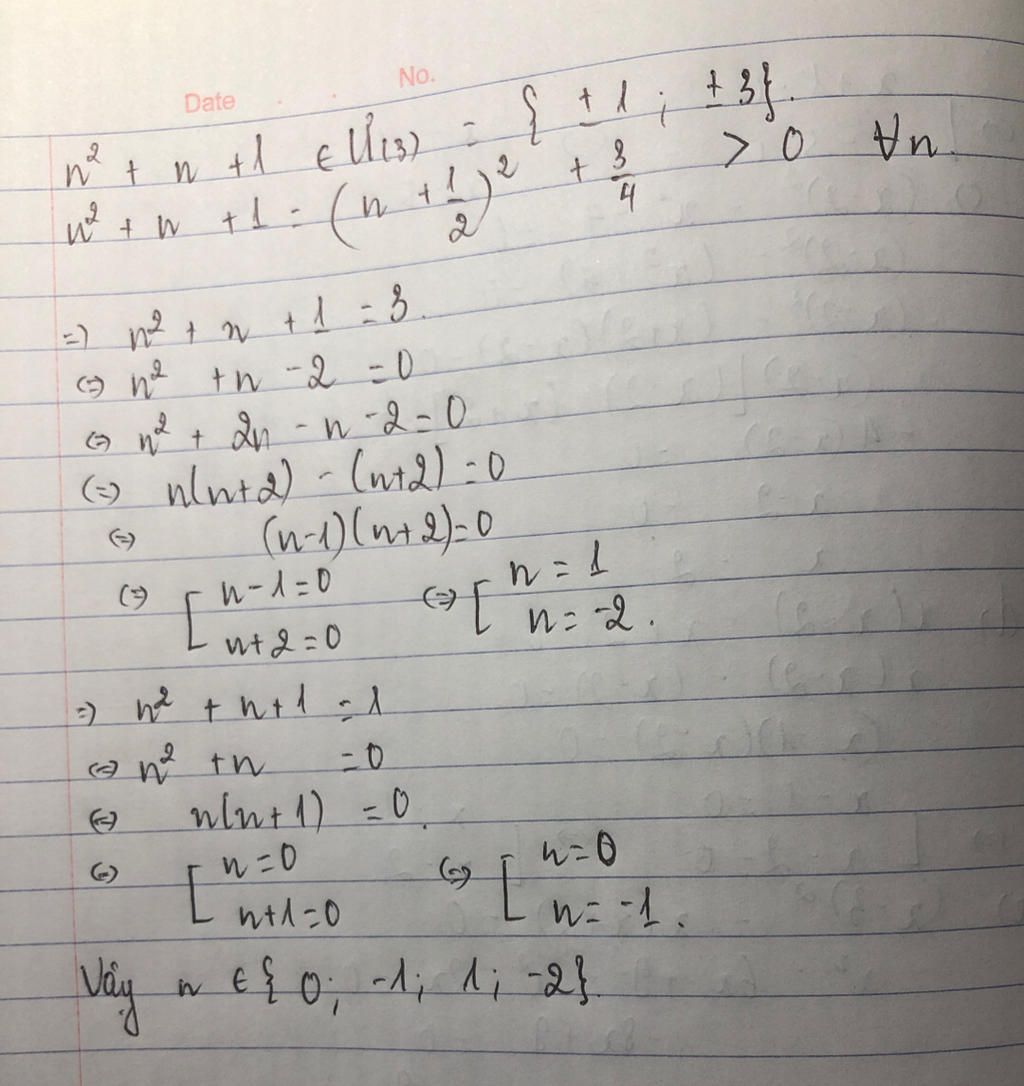 Date . . No.
n² + n + 1 ∈ Ư(3) = { ± 1 ; ± 3}.
n² + n + 1 = (n + 1/2)² + 3/4 > 0 ∀n.
=) n² + n + 1 = 3.
(=) n² + n - 2 = 0
(=) n² + 2n - n - 2 = 0
(=) n(n+2) - (n+2) = 0
(=) (n-1)(n+2)=0
(=) [ n-1=0 (=) [ n = 1
n+2=0 n = -2.
=) n² + n + 1 = 1
(=) n² + n = 0
(=) n(n+1) = 0.
(=) [ n=0 (=) [ n=0
n+1=0 n= -1.
Vậy n ∈ { 0; -1; 1; -2}.